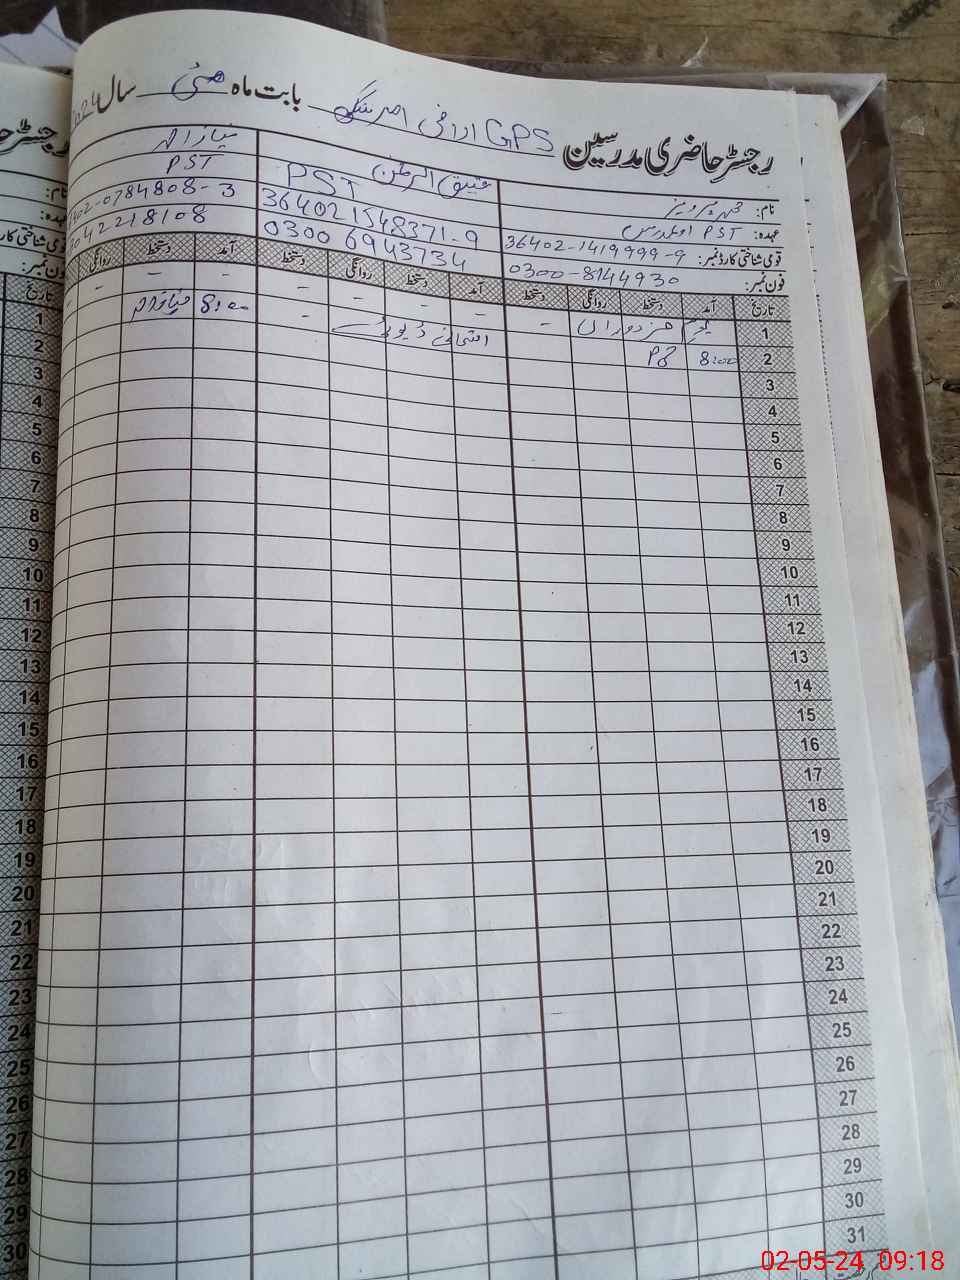 رجسٹر حاضری مدرسین GPS اراضی امیر سنگھ بابت ماہ مئی سال 2024
نام: محمد پرویز
عتیق الرحمٰن
نیاز احمد
عہدہ: PST اول مدرس
PST
PST
قومی شناختی کارڈ نمبر: 36402-1419999-9
364021548371-9
402-0784808-3
فون نمبر: 0300-8144930
0300 6943734
3042218108
تاریخ آمد دستخط روانگی دستخط آمد دستخط روانگی دستخط آمد دستخط روانگی
1 یکم مزدوراں - - - - - - - - -
2 8:00 امتحانی ڈیوٹی 8:00 نیاز احمد
3
4
5
6
7
8
9
10
11
12
13
14
15
16
17
18
19
20
21
22
23
24
25
26
27
28
29
30
31
رجسٹر حا
نام:
عہدہ:
قومی شناختی کارڈ
فون نمبر:
تاریخ
1
2
3
4
5
6
7
8
9
10
11
12
13
14
15
16
17
18
19
20
21
22
23
24
25
26
27
28
29
30
02-05-24 09:18